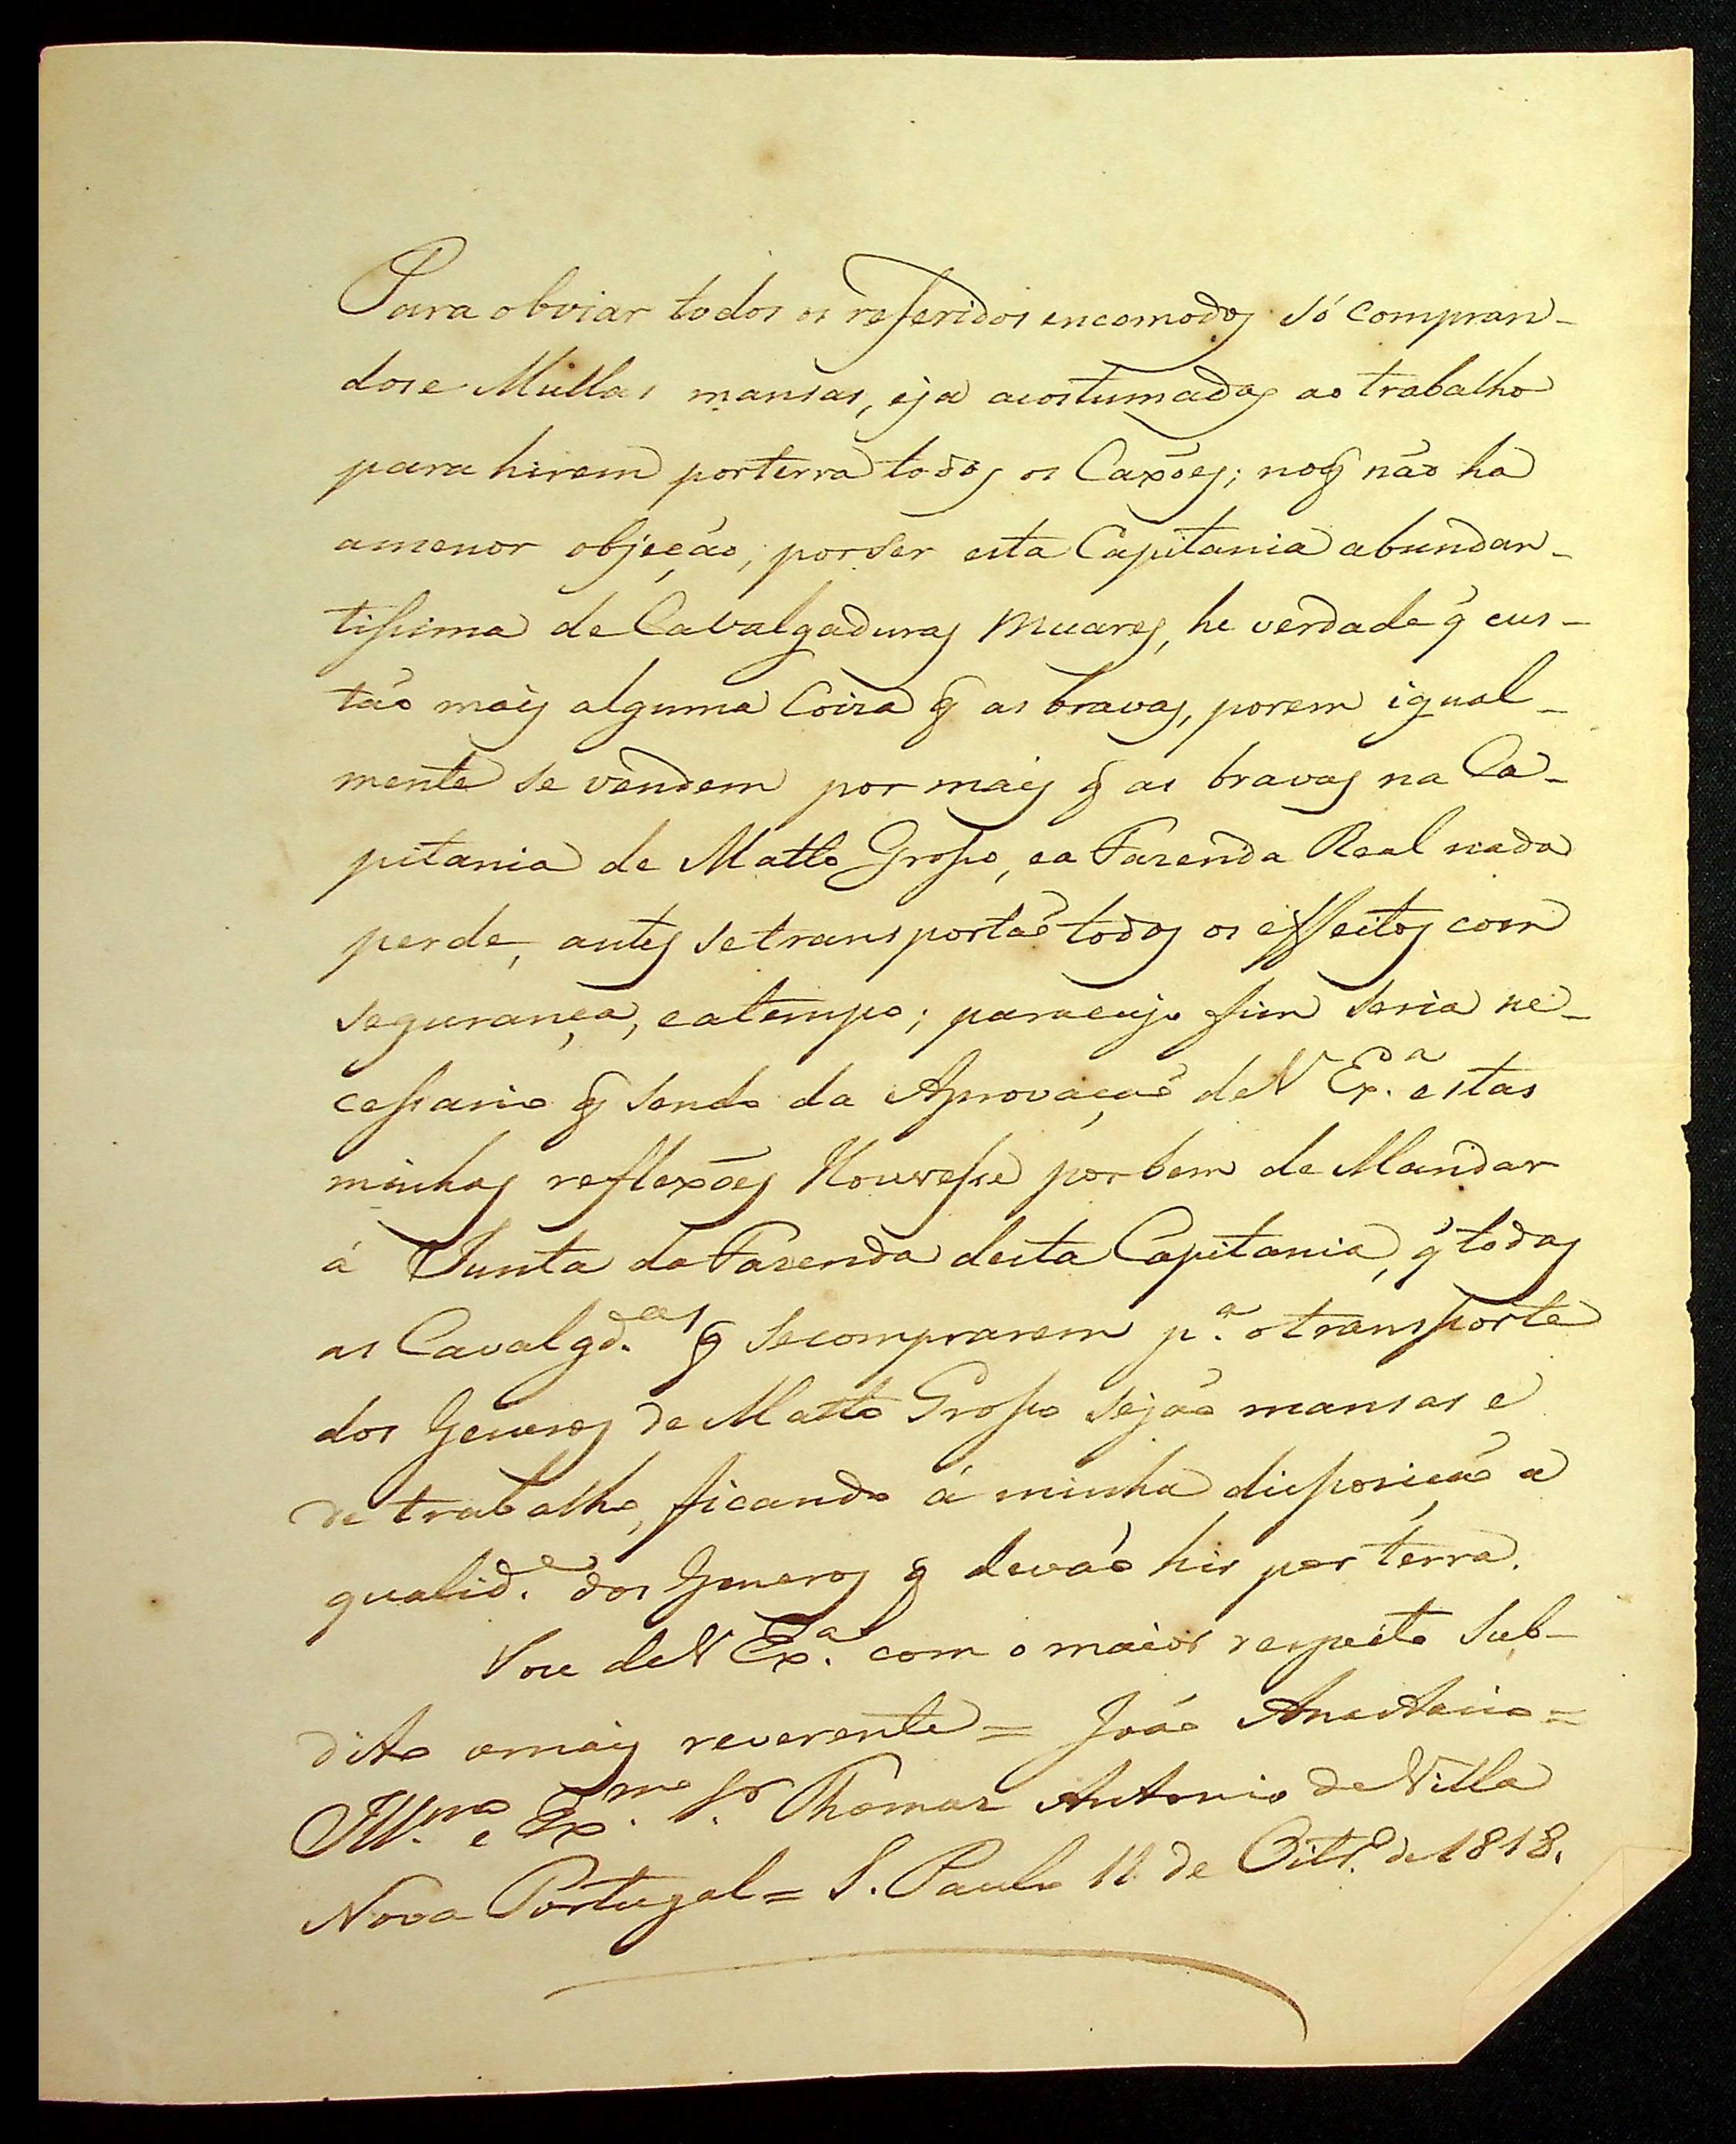 Para obviar todos os referidos encomodos só compran-
dose Mullas mansas, eja acostumadas ao trabalho
para hirem porterra todos os Caxões; noq̃ não ha
amenor objeção, porser esta Capitania abundan-
tissima de Cavalgaduras Muares, he verdade q̃ cus-
tão mais alguma Coiza q̃ as bravas, porem igual-
mente se vendem por mais q̃ as bravas na Ca-
pitania de Matto Grosso, ea Fazenda Real nada
perde, antes setransportão todos os effeitos com
segurança, eatempo; paracujo fim seria ne-
cessario q̃ sendo da Aprovação deV Ex.ª estas
minhas reflexões Houvesse por bem de Mandar
á Junta da Fazenda desta Capitania, q̃ todas
as Cavalgd.as q̃ secomprarem p.ª otransporte
dos Generos de Matto Grosso sejão mansas e
de trabalho, ficando á minha disposição a
qualid.e dos Generos q̃ devão hir por terra.
Sou deV Ex.ª com o maior respeito Sub-
dito omais reverente = João Anastacio =
Ill.mo e Ex.mo S.r Thomaz Antonio de Villa
Nova Portugal = S. Paulo 11 de Oitb.º de 1818.